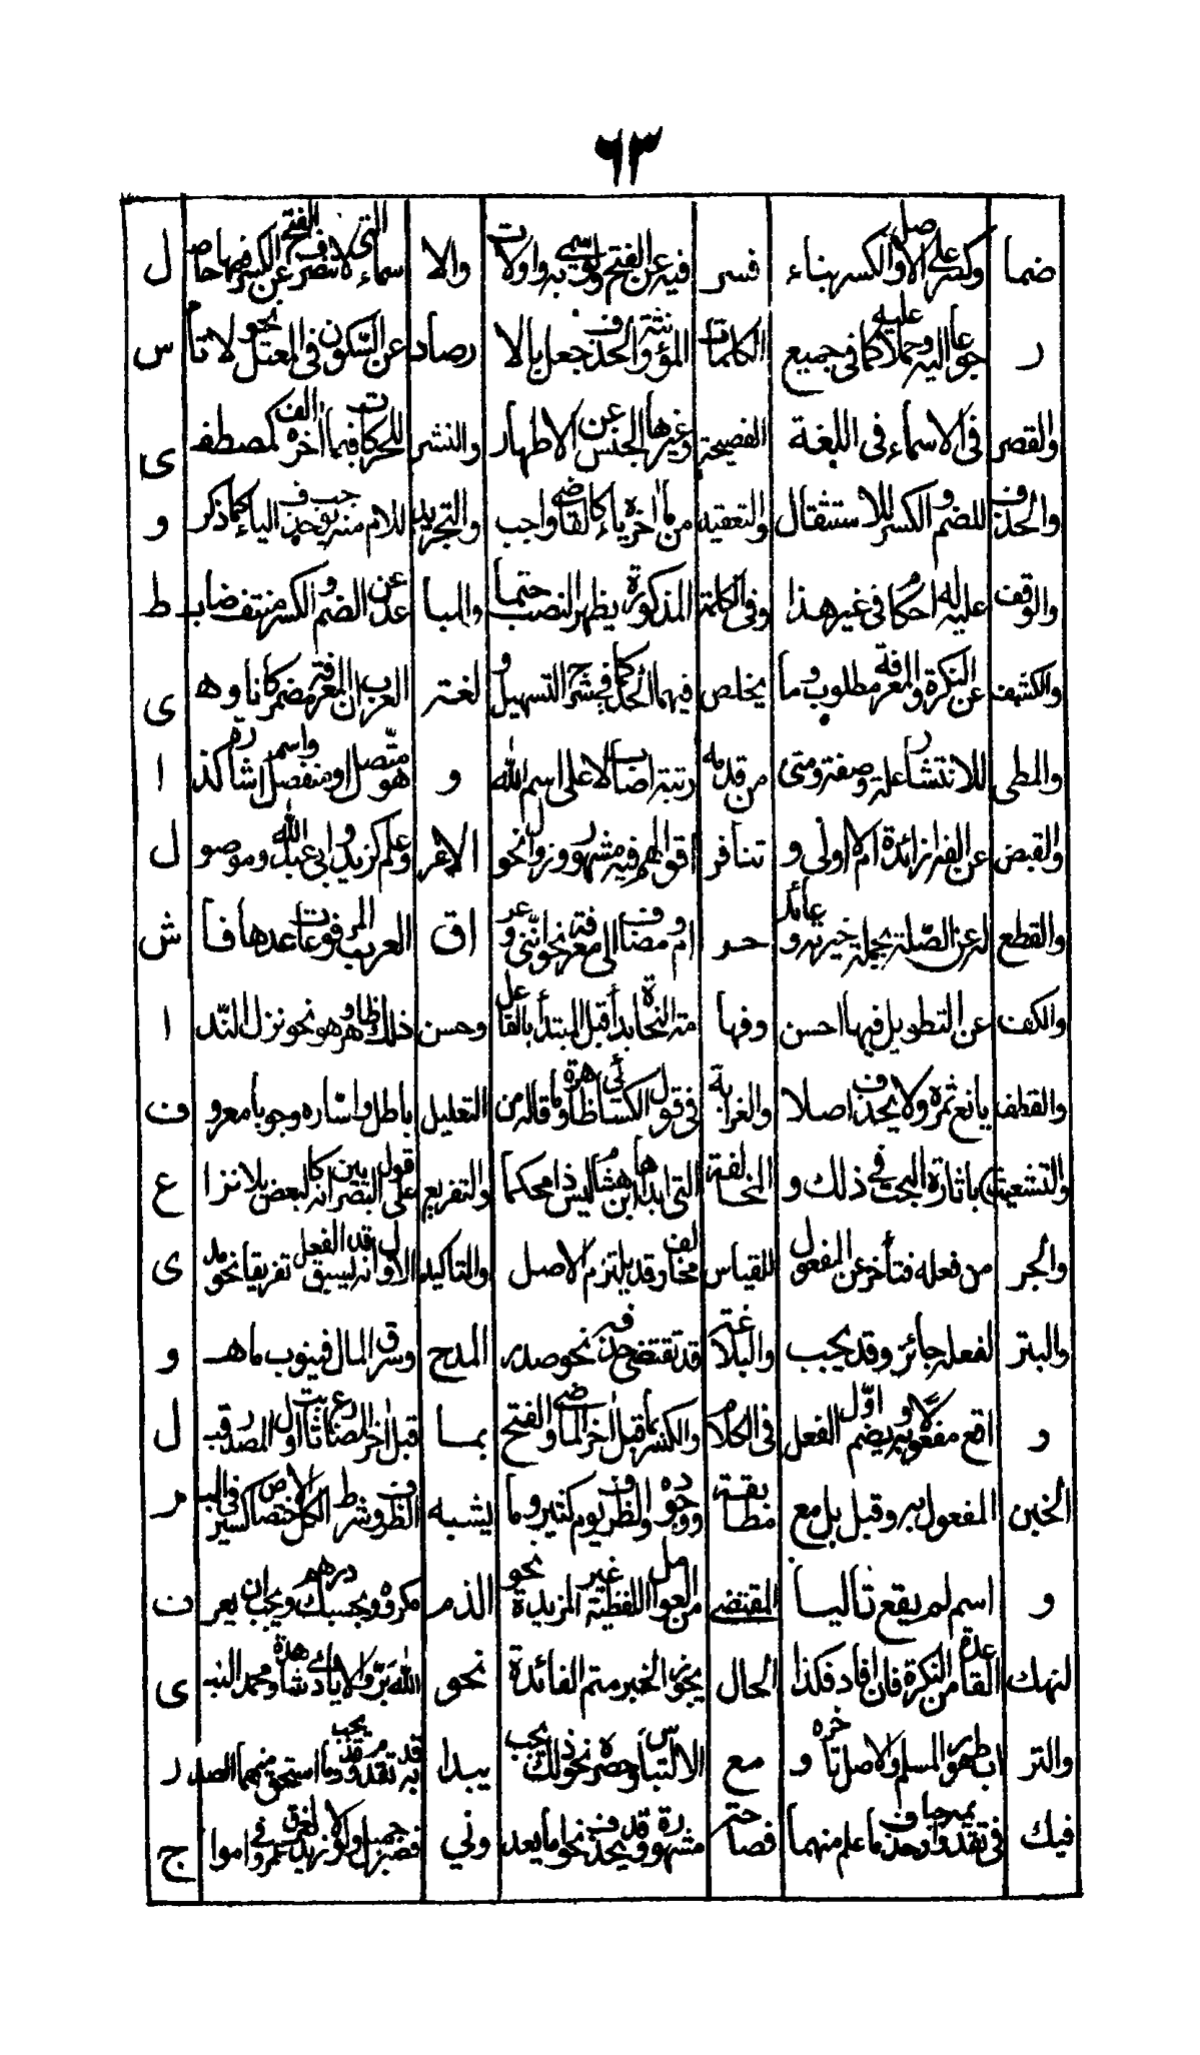 ٦٣
ضما وكسر على الاصل والكسر بناء فسر فيه عن الفتح ولو سمي به واولات والا سماء التي لا تنصرف الفتح عن الكسر فيها حاص ل
ر جوعا اليه وحملا عليه كما في جميع الكلمات المؤنثة والحذف جعل بالا رصاد عن السكون في المعتل نحو لا تأ س
والقصر في الاسماء في اللغة الفصيحة وغيرها الجنس عن الاظهار والنشر للحركات فيما اخره الف كمصطفـ ى
والحذف للضم والكسر للاستثقال والتعقيد من ما اخره ياء كالقاضي واجب والتجريد للام منه يوجب حذف الياء كما ذكر و
والوقف عليه له احكام في غير هذا وفي الكلمة المذكورة يظهر النصب حتما والمبا عدة عن الضم والكسر منتف ضابـ ط
والكشف عن النكرة والمعرفة مطلوب وما يخلص فيهما الحد كما في شرح التسهيل و لغة العرب ان المعرفة مضمر كانا وهـ ى
والطى للانتشار علة وصفة ومتى من قدمه رتبة اصاب لا على اسم الله و هو متصل او منفصل واسم اشارة كذ ا
والقبض عن الفه زائدة ام لا اولى و تنافر اقوالهم فيه مشهور ونزل نحو الاعر وعلم كزيد وابي عبد الله وموصو ل
والقطع له عن الصلة بجملة خبرية و عائد حر ام ومضاف الى معرفة نحو انني وعر اق العرب المرفوعات عدها فا ش
والكف عن التطويل فيها احسن وفها مة النحاة بدأ قبل المبتدأ بالفاعل وحسن ذلك ظاهر وهو نحو نزل النّد ا
والقطف يانع ثمره ولا يحذف اصلا والغرابة في قول الكسائي ظاهرة وما قاله من التعليل باطل واشاره وجوبا معرو ف
والتشعيث باثارة البحث في ذلك و المخالفة التي ابداها ابن هشام ليس ذا محكما والتفريع على قول البصريين انه كالبعض بلا نزا ع
والجر من فعله فتأخر عن المفعول للقياس مخالف وقد يلتزم الاصل والتاكيد الاول انه قد ليسبق الفعل تفريقا نحو مد ى
والبتر لفعله جائز وقد يجب والبلاغة قد تقتضي حذفه نحو صدر المدح وسرق المال فينوب ما هـ و
و اقع مفعولا به ويضم اول الفعل في الكلام والكسر ما قبل اخر الماضي والفتح بما قبل اخر المضارع ثابت اول المصدر قبـ ل
الخبن المفعول به وقبل بل مع مطابقة وجوده والظرف يوم كتير وما يشبه الظرف وشرط الكل الاختصاص كسير في البـ ر
و اسم لم يقع تاليا المقتضى من العوامل اللفظية غير المزيدة نحو الذم مكروه وبحسبك درهم ويجب ان يعر ف
لنهك القاعدة من النكرة فان افاد فكذا الحال يجوز والخبر متم الفائدة نحو الله بَرّ والايادي شاهدة ومحمد النبـ ى
والتر اب طهور المسلم والاصل تأخره و مع الالتباس وحصره نحو ذلك يجب يبدا به تقدم قد وقد يجب وما استحق منهما الصد ر
فيك في تقديم وجاز حذف ما علم منهما فصاحة مشهورة وقد يحذف نحو ما يعد وني فصبر جميل ولولا زيد لغرق عمرو في اموا ج